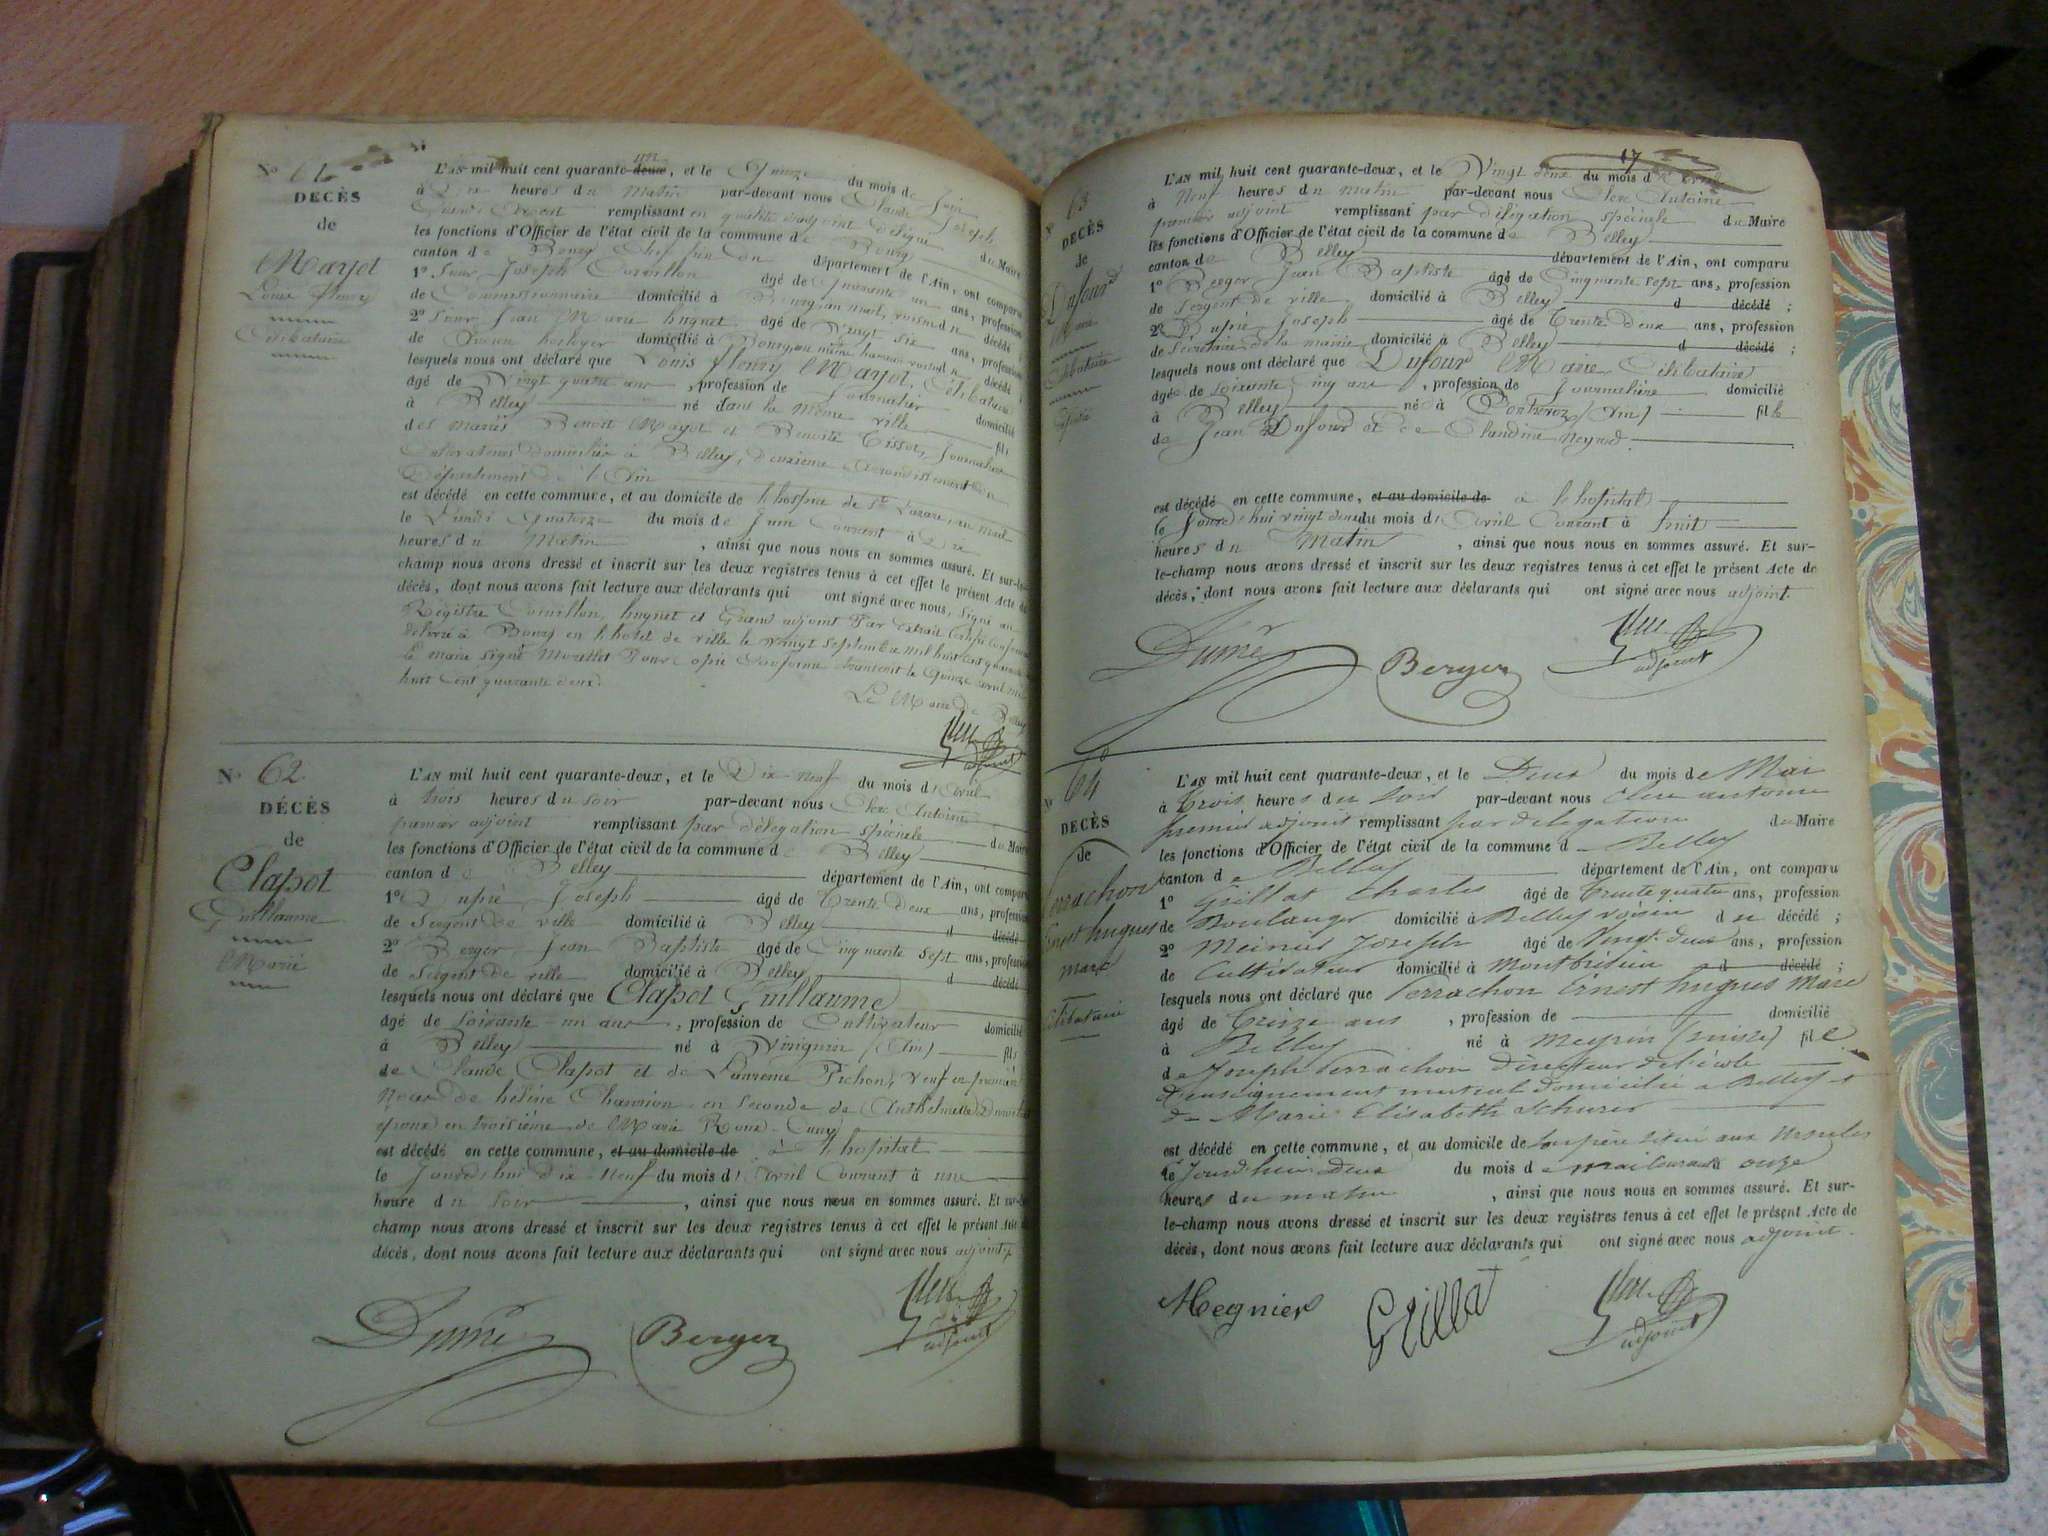 N° 61
DECÈS
de
Mayot
Louis fleury
Célibataire
L'AN mil huit cent quarante-deux un, et le Quinze du mois de Juin
à Dix heures du Matin par-devant nous Claude Joseph
Grand remplissant en qualité d'adjoint délégué
les fonctions d'Officier de l'état civil de la commune de Bourg du Maire
canton de Bourg Chef lieu du département de l'Ain, ont comparu
1° Sieur Joseph Cornillon âgé de Quarante un ans, profession
de Commissionnaire domicilié à Bourg voisin du décédé
2° Sieur Jean Marie huguet âgé de Vingt six ans, profession
de horloger domicilié à Bourg voisin du décédé
lesquels nous ont déclaré que Louis fleury Mayot, Célibataire
âgé de Vingt quatre ans, profession de Journalier domicilié
à Belley né dans la même ville fils
des mariés Benoit Mayot et Benoite Tissot, Journaliers
Cultivateurs domiciliés à Belley, deuxième arrondissement du
Département de l'Ain
est décédé en cette commune, et au domicile de l'hospice de St Lazare,
le Lundi Quatorze du mois de Juin Courant à Dix
heures du Matin, ainsi que nous nous en sommes assuré. Et sur-le-
champ nous avons dressé et inscrit sur les deux registres tenus à cet effet le présent Acte de
décès, dont nous avons fait lecture aux déclarants qui ont signé avec nous, Signé au
Registre Cornillon, huguet et Grand adjoint Par Extrait Certifié Conforme
délivré à Bourg en l'hotel de ville le vingt septembre mil huit cent quarante
le maire signé Pour Copie Conforme transcrit le Quinze avril mil
huit cent quarante deux.
Le Maire de Belley
adjoint
N° 62
DÉCÈS
de
Clapot
Guillaume
Marié
L'AN mil huit cent quarante-deux, et le Dix-Neuf du mois d'Avril
à trois heures du soir par-devant nous Clerc Antoine
premier adjoint remplissant par délégation spéciale du Maire
les fonctions d'Officier de l'état civil de la commune de Belley
canton de Belley département de l'Ain, ont comparu
1° Dupré Joseph âgé de Trente deux ans, profession
de Sergent de ville domicilié à Belley d décédé
2° Berger Jean Baptiste âgé de Cinquante Sept ans, profession
de Sergent de ville domicilié à Belley d décédé
lesquels nous ont déclaré que Clapot Guillaume
âgé de soixante-un ans, profession de Cultivateur domicilié
à Belley né à Virignin (Ain) fils
de Claude Clapot et de Laurence Pichon, veuf en premières
Noces de héline Chanvion en seconde de Anthelmette
époux en troisième de Marie Roux-Cuny
est décédé en cette commune, et au domicile de à l'hopital
le Jourd'hui dix neuf du mois d'Avril Courant à une
heure du soir, ainsi que nous nous en sommes assuré. Et sur-le-
champ nous avons dressé et inscrit sur les deux registres tenus à cet effet le présent Acte de
décès, dont nous avons fait lecture aux déclarants qui ont signé avec nous adjoint
Dupré Berger adjoint
17
N° 63
DECÈS
de
Dufour
Marie
Célibataire
L'AN mil huit cent quarante-deux, et le Vingt deux du mois d'Avril
à Neuf heures du matin par-devant nous Clerc Antoine
premier adjoint remplissant par délégation spéciale du Maire
les fonctions d'Officier de l'état civil de la commune de Belley
canton de Belley département de l'Ain, ont comparu
1° Berger Jean Baptiste âgé de Cinquante sept ans, profession
de Sergent de ville domicilié à Belley d décédé ;
2° Dupré Joseph âgé de Trente deux ans, profession
de Sécretaire de la mairie domicilié à Belley d décédé ;
lesquels nous ont déclaré que Dufour Marie Célibataire
âgée de soixante cinq ans, profession de Journalière domicilié
à Belley né à (Ain) fille
de Jean Dufour et de Claudine Neyrod
est décédé en cette commune, et au domicile de à l'hopital
le Jourd'hui vingt deux du mois d'Avril Courant à huit
heures du Matin, ainsi que nous nous en sommes assuré. Et sur-
le-champ nous avons dressé et inscrit sur les deux registres tenus à cet effet le présent Acte de
décès, dont nous avons fait lecture aux déclarants qui ont signé avec nous adjoint.
Dupré Berger adjoint
N° 64
DECÈS
de
Perrachon
Ernest hugues
marc
Célibataire
L'AN mil huit cent quarante-deux, et le Deux du mois de Mai
à Trois heures du soir par-devant nous Clerc antoine
premier adjoint remplissant par délégation du Maire
les fonctions d'Officier de l'état civil de la commune d Belley
canton de Belley département de l'Ain, ont comparu
1° Grillat Charles âgé de Trente quatre ans, profession
de Boulanger domicilié à Belley voisin du décédé ;
2° Meinier Joseph âgé de Vingt-deux ans, profession
de Cultivateur domicilié à d décédé ;
lesquels nous ont déclaré que Perrachon Ernest hugues Marc
âgé de Treize ans, profession de domicilié
à Belley né à Meyrin (suisse) fils
de Joseph Perrachon Directeur de l'école
d'enseignement mutuel domicilié à Belley et
de Marie Elisabeth Schurer
est décédé en cette commune, et au domicile de son père situé aux ursules
le Jourd'hui Deux du mois de mai courant à onze
heures du matin, ainsi que nous nous en sommes assuré. Et sur-
le-champ nous avons dressé et inscrit sur les deux registres tenus à cet effet le présent Acte de
décès, dont nous avons fait lecture aux déclarants qui ont signé avec nous adjoint.
Megnier Grillat adjoint